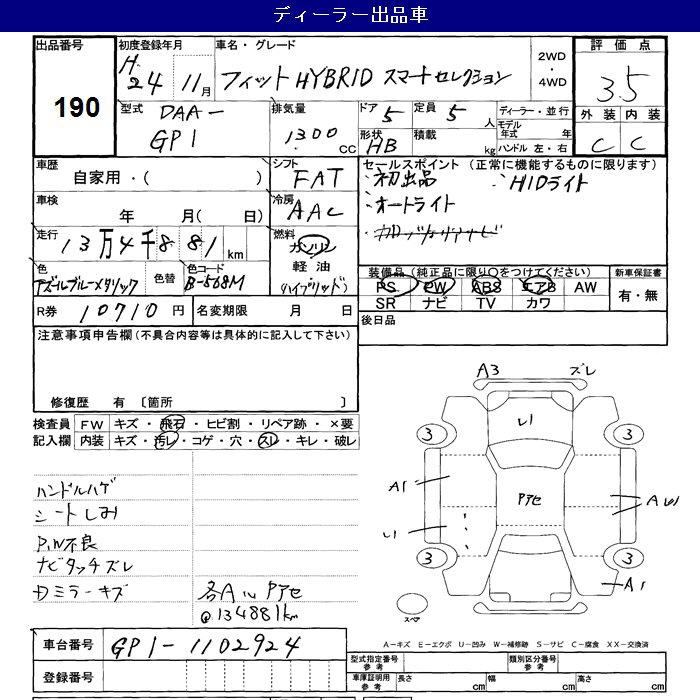 ディーラー出品車
出品番号 190
初度登録年月 H 24 年 11 月
車名・グレード フィット HYBRID スマートセレクション
2WD・4WD
評価点 3.5
型式 DAA- GP1
排気量 1300 CC
ドア 5 定員 5 人
形状 HB 積載 kg
ディーラー・並行
モデル年式 年
ハンドル 左・右
外装 内装
C C
車歴 自家用・( )
シフト FAT
セールスポイント (正常に機能するものに限ります)
・初出品 ・HIDライト
・オートライト
車検 年 月( 日)
冷房 AAC
走行 13万4千881 km
燃料 ガソリン
軽油
(ハイブリッド)
色 アズールブルーメタリック
色替
色コード B-568M
装備品(純正品に限り○をつけてください)
PS PW ABS エアB AW
SR ナビ TV カワ
新車保証書
有・無
R券 10710 円
名変期限 月 日
後日品
注意事項申告欄(不具合内容等は具体的に記入して下さい)
修復歴 有 〔箇所 〕
検査員記入欄
FW キズ・飛石・ヒビ割・リペア跡・×要
内装 キズ・汚レ・コゲ・穴・スレ・キレ・破レ
ハンドルハゲ
シートしみ
P,W不良
ナビタッチズレ
Dミラーキズ
各A ＿ Pアセ
@134881km
A3 ズレ
U1
3 3
A1
Pアセ
A
U1
3 3
A1
スペア
A-キズ E-エクボ U-凹み W-補修跡 S-サビ C-腐食 XX-交換済
車台番号 GP1-1102924
登録番号
型式指定番号 参考
類別区分番号 参考
車庫証明用 参考
長さ cm 幅 cm 高さ cm